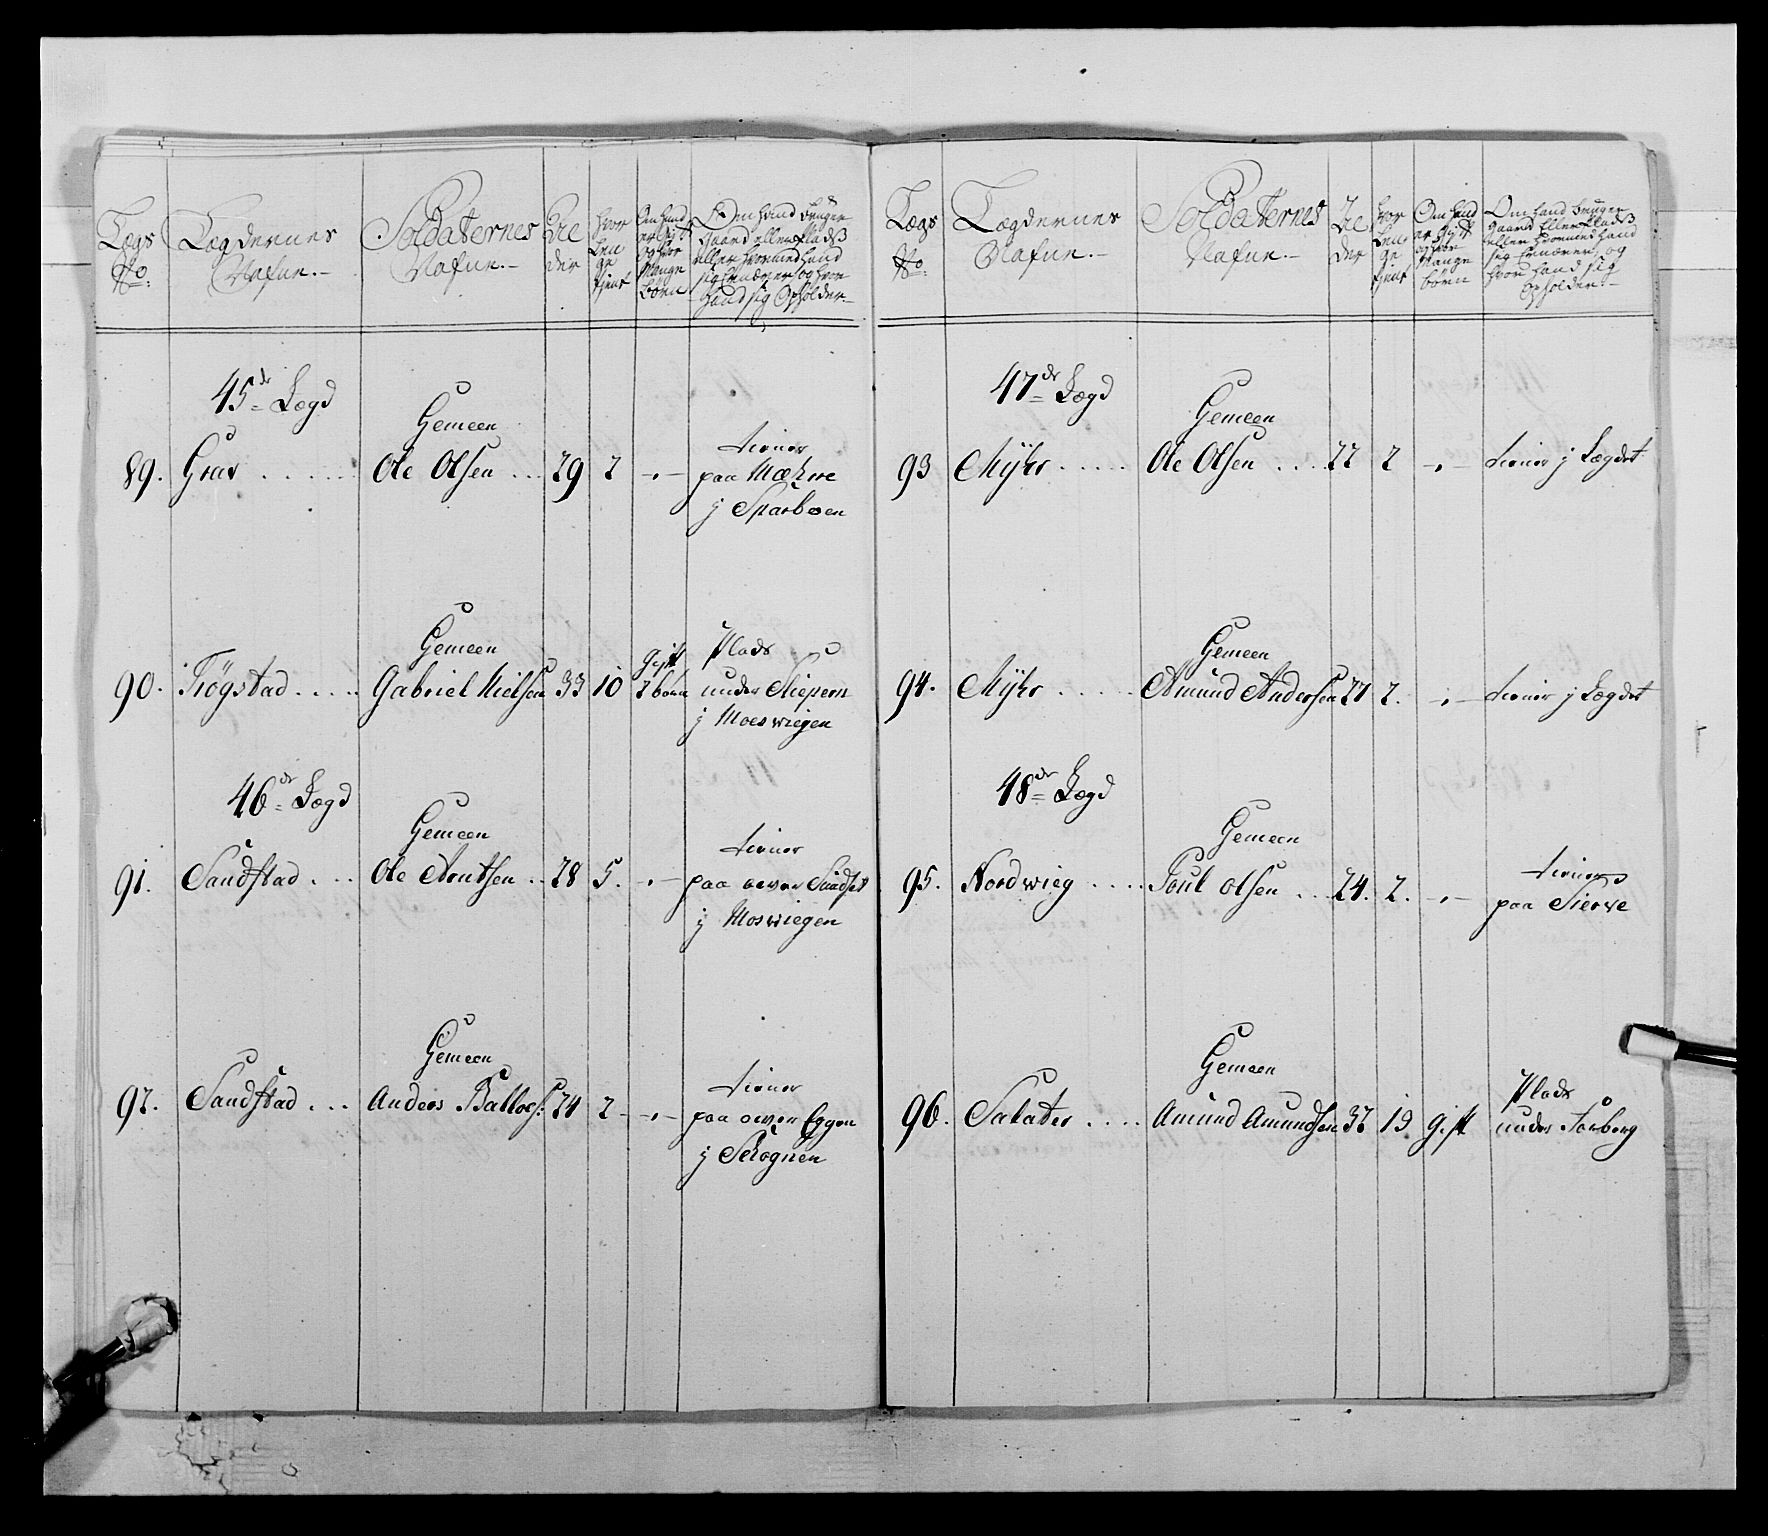 Lægs No.
Lægdernes Nafne.
Soldaternes Nafne.
Alder
Hvor Lenge tient
Om hand er Gift og hvor Mange børn
Om hand bruger Gaard eller Plads eller hvormed hand sig Ernærer, og hvor hand sig Opholder.
45de Lægd
Gemeen
89. Grav Ole Olsen 29 2 tiener paa Mæhre
j Sparboen
Gemeen
90. Trøgstad Gabriel Nielsen 33 10 Gift 2 børn Plads under
j Moeswiegen
46de Lægd
Gemeen
91. Sandstad Ole Arntsen 28 5. tiener
paa
j Moswiegen
Gemeen
92. Sandstad Anders 24 2 tiener
paa oever Eggen
j Schognen
Lægs No.
Lægdernes Nafne.
Soldaternes Nafne.
Alder
Hvor Lenge tient
Om hand er Gift og hvor Mange børn
Om hand bruger Gaard Eller Plads eller hvormed hand sig Ernærer, og hvor hand sig Opholder.
47de Lægd
Gemeen
93 Myhr Ole Olsen 22 2 tiener j Lægdet
Gemeen
94. Myhr Amund Andersen 22 2. tiener j Lægdet
48de Lægd
Gemeen
95. Nordwieg Poul Olsen 24. 2. tiener
paa
Gemeen
96. Salater Amund Amundsen 32 13 gift Plads
under Forberg